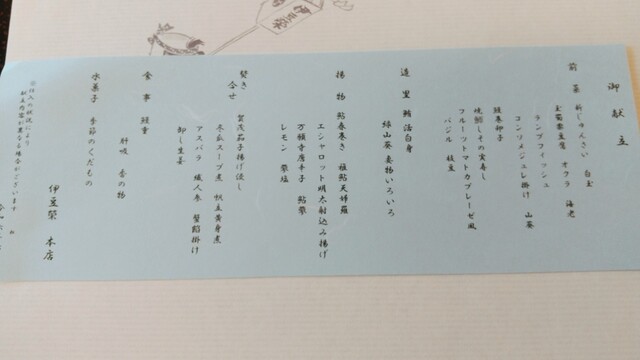 御献立
前菜 新じゅんさい 白玉
玉蜀黍豆腐 オクラ 海老
ランプフィッシュ
コンソメジュレ掛け 山葵
鰻巻卵子
焼鯛しその実寿し
フルーツトマトカプレーゼ風
バジル 枝豆
造里 鮪 活白身
緑山葵 妻物いろいろ
揚物 鮎春巻き 稚鮎天婦羅
エシャロット明太射込み揚げ
万願寺唐辛子 鮎蓼
レモン 藻塩
焚き合せ 賀茂茄子揚げ浸し
冬瓜スープ煮 帆立黄身煮
アスパラ 織人参 蟹餡掛け
卸し生姜
食事 鰻重
肝吸 香の物
水菓子 季節のくだもの
伊豆榮 本店
※仕入の状況により
献立内容が異なる場合がございます
伊豆榮